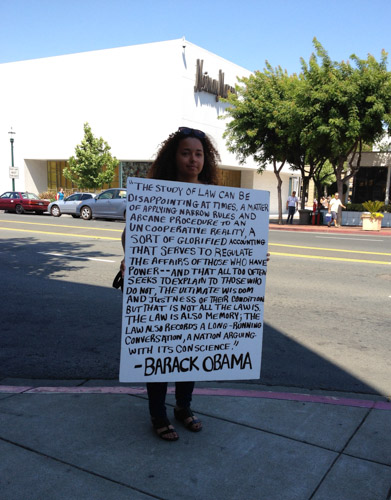 Neiman Marcus
"THE STUDY OF LAW CAN BE
DISAPPOINTING AT TIMES, A MATTER
OF APPLYING NARROW RULES AND
ARCANE PROCEDURE TO AN
UNCOOPERATIVE REALITY, A
SORT OF GLORIFIED ACCOUNTING
THAT SERVES TO REGULATE
THE AFFAIRS OF THOSE WHO HAVE
POWER--AND THAT ALL TOO OFTEN
SEEKS TO EXPLAIN TO THOSE WHO
DO NOT, THE ULTIMATE WISDOM
AND JUSTNESS OF THEIR CONDITION
BUT THAT IS NOT ALL THE LAW IS.
THE LAW IS ALSO MEMORY; THE
LAW ALSO RECORDS A LONG-RUNNING
CONVERSATION, A NATION ARGUING
WITH ITS CONSCIENCE."
-BARACK OBAMA